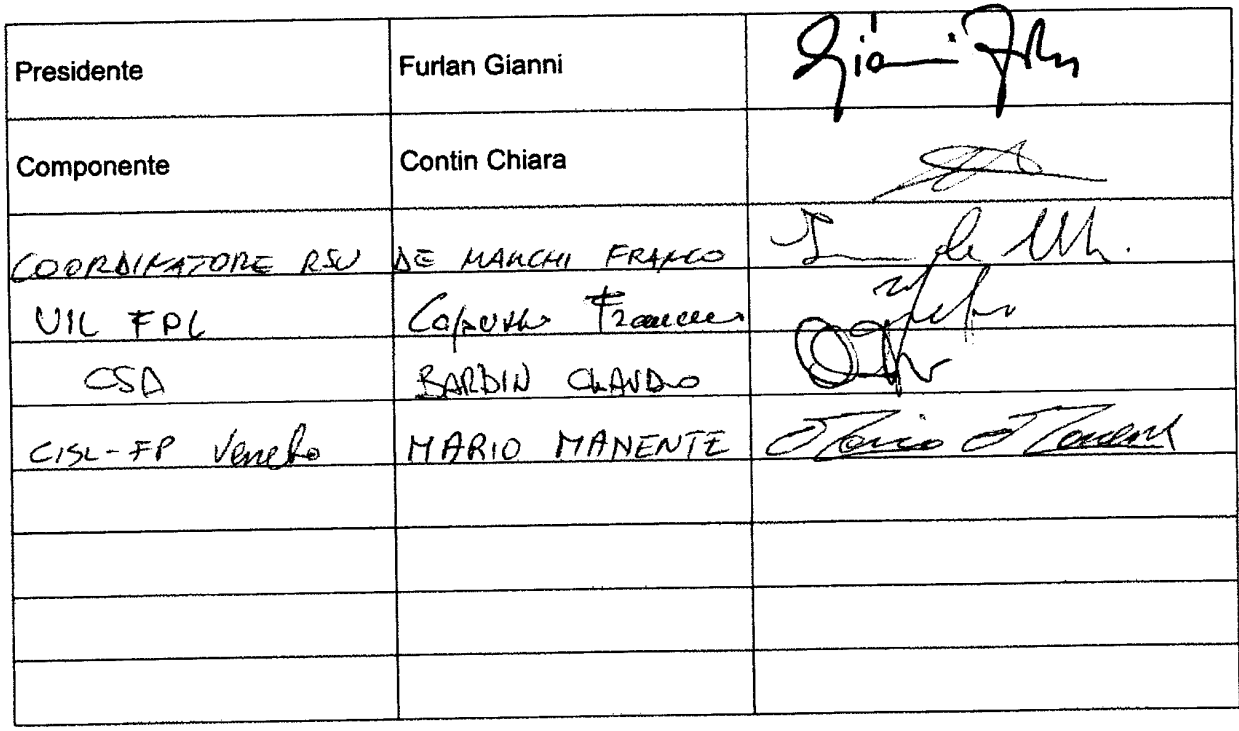 Presidente Furlan Gianni Gianni
Componente Contin Chiara
COORDINATORE RSU DE MARCHI FRANCO
UIL FPL
CSA BARDIN CLAUDIO
CISL-FP Veneto MARIO MANENTE Mario Manente